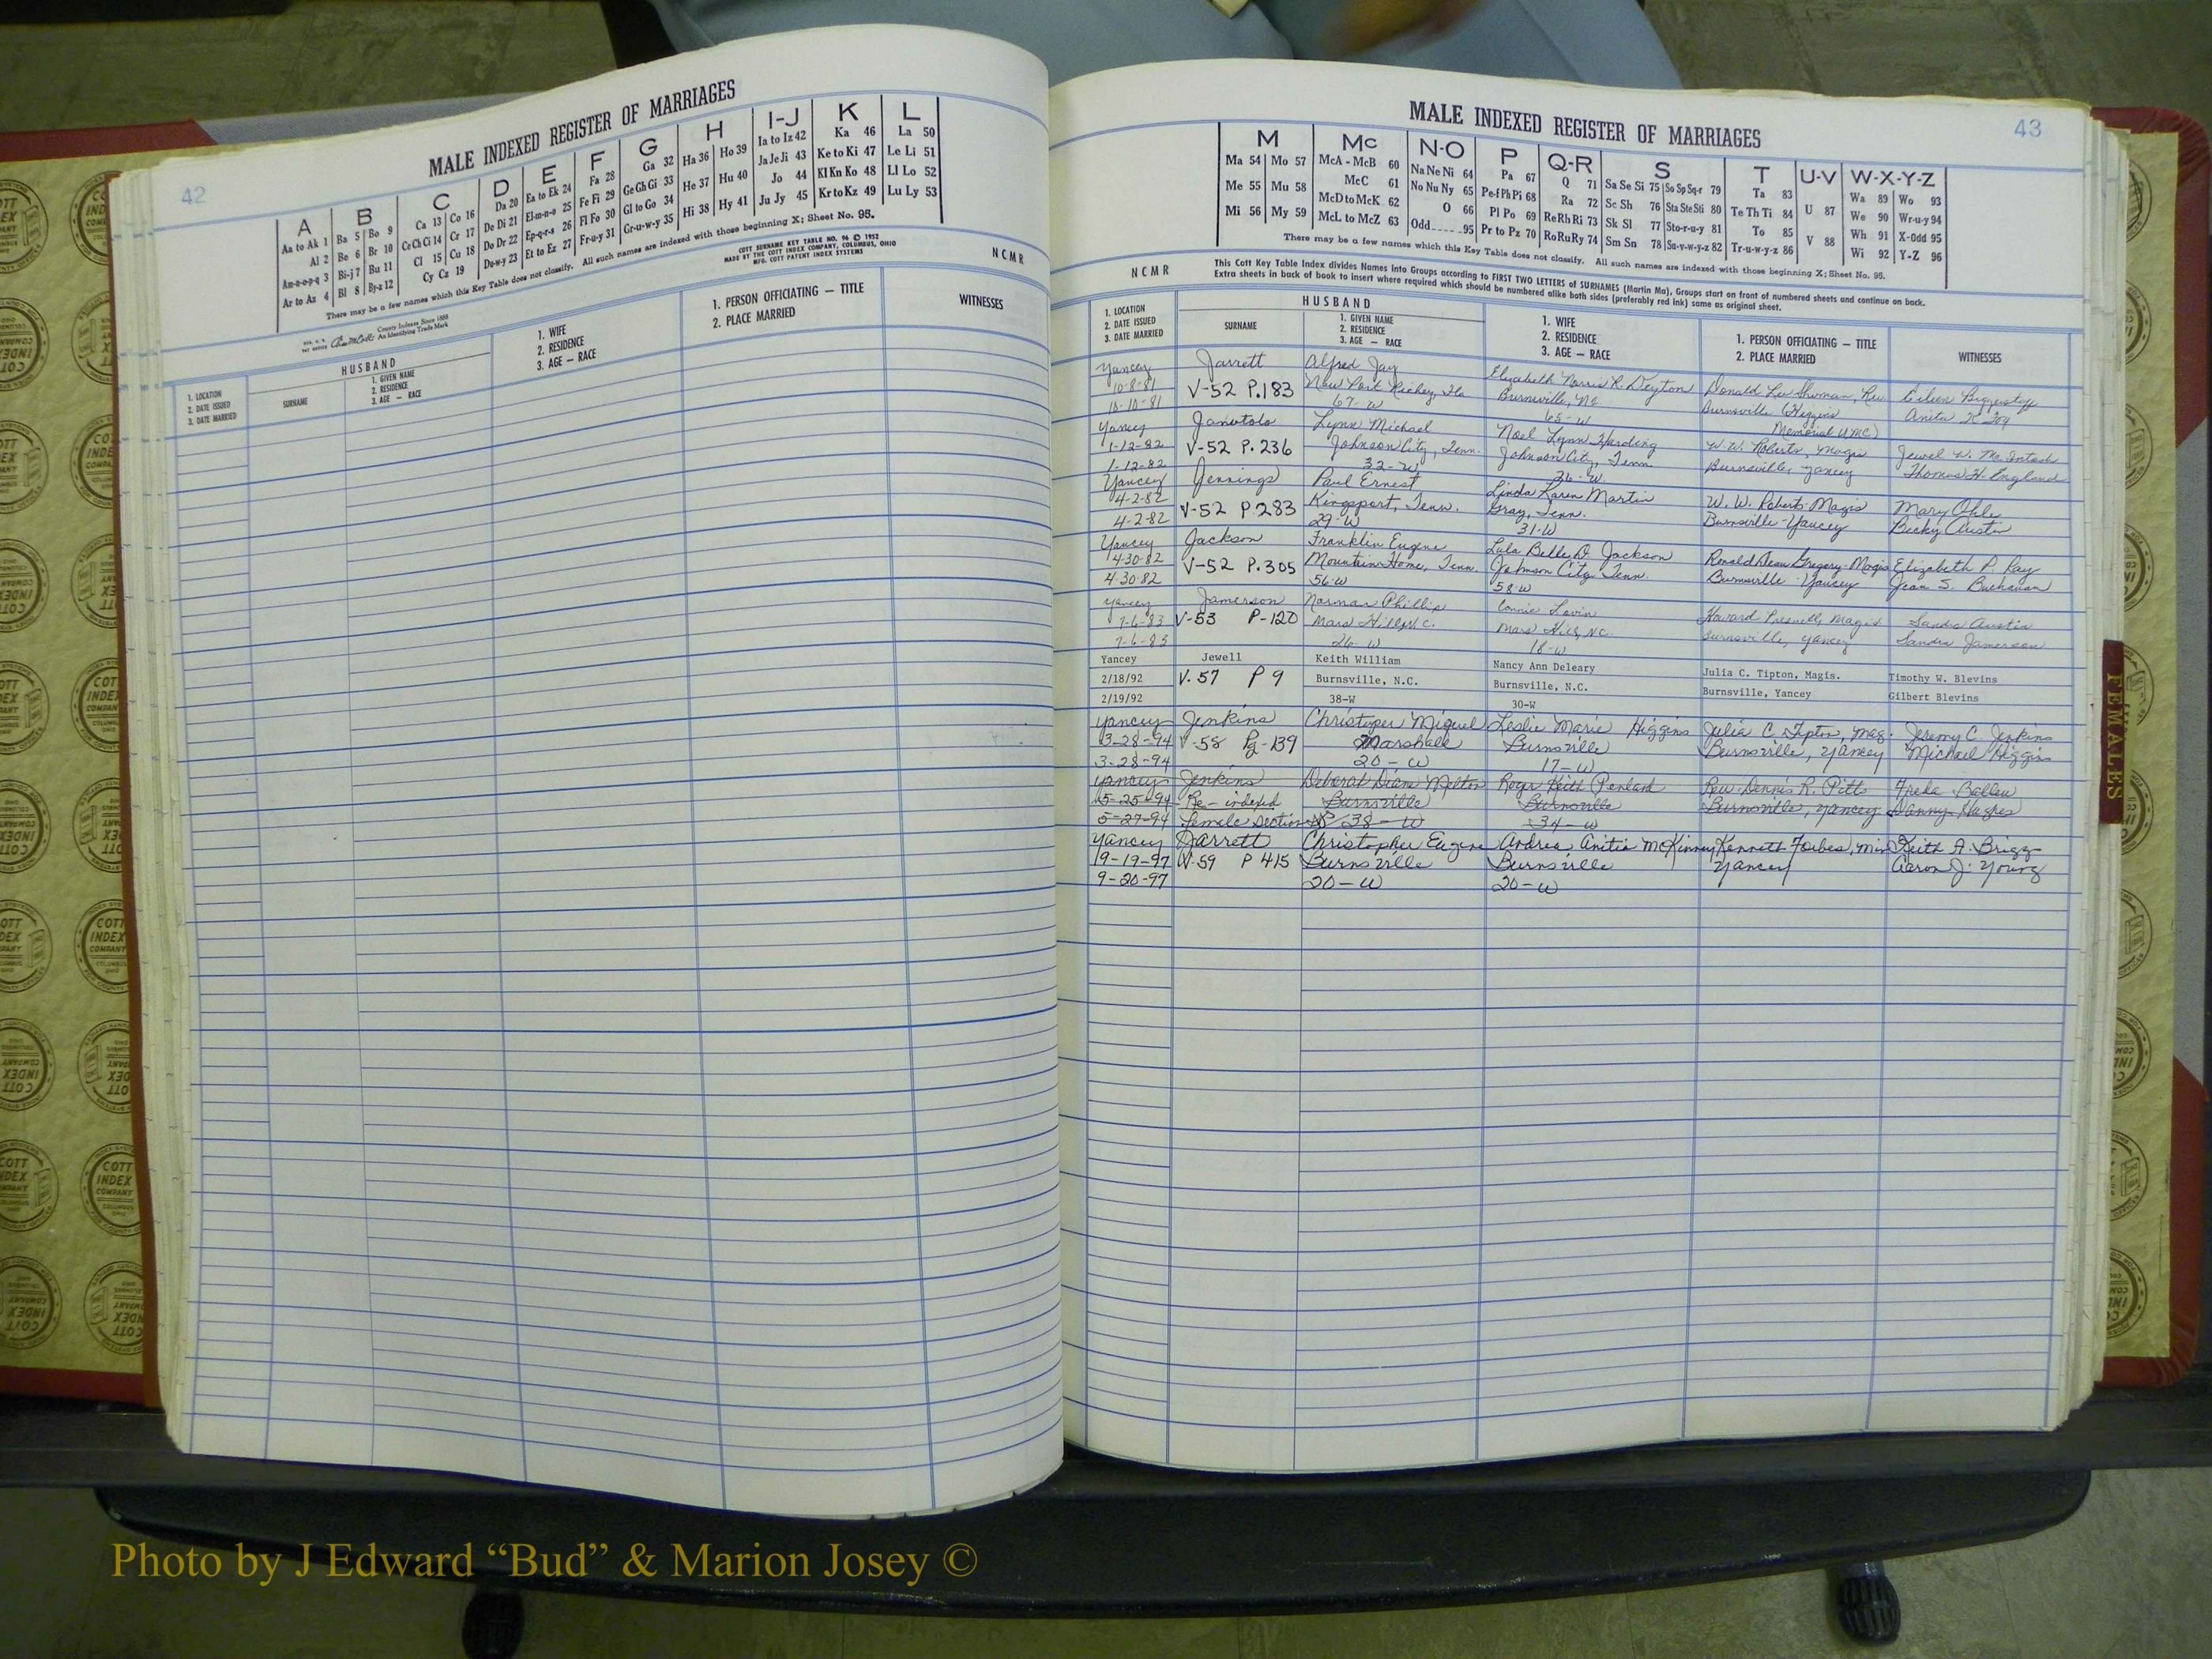 42
MALE INDEXED REGISTER OF MARRIAGES
A B C D E F G H I-J K L
Aa to Ak 1 Ba 5 Bo 9 Ca 13 Co 16 Da 20 Ea to Ek 24 Fa 28 Ga 32 Ha 36 Ho 39 Ia to Iz 42 Ka 46 La 50
Al 2 Be 6 Br 10 Ce Ch Ci 14 Cr 17 De Di 21 El-m-n-o 25 Fe Fi 29 Ge Gh Gi 33 He 37 Hu 40 Ja Je Ji 43 Ke to Ki 47 Le Li 51
Am-n-o-p-q 3 Bi-j 7 Bu 11 Cl 15 Cu 18 Do Dr 22 Ep-q-r-s 26 Fl Fo 30 Gl to Go 34 Hi 38 Hy 41 Jo 44 Kl Kn Ko 48 Ll Lo 52
Ar to Az 4 Bl 8 By-z 12 Cy Cz 19 Du-w-y 23 Et to Ez 27 Fr-u-y 31 Gr-u-w-y 35 Ju Jy 45 Kr to Kz 49 Lu Ly 53
There may be a few names which this Key Table does not classify. All such names are indexed with those beginning X; Sheet No. 95.
COTT SURNAME KEY TABLE NO. 96 © 1952
MADE BY THE COTT INDEX COMPANY, COLUMBUS, OHIO
MFG. COTT PATENT INDEX SYSTEMS
NCMR
County Indexes Since 1888
An Identifying Trade Mark
1. LOCATION
2. DATE ISSUED
3. DATE MARRIED
HUSBAND
SURNAME
1. GIVEN NAME
2. RESIDENCE
3. AGE — RACE
1. WIFE
2. RESIDENCE
3. AGE — RACE
1. PERSON OFFICIATING — TITLE
2. PLACE MARRIED
WITNESSES
43
MALE INDEXED REGISTER OF MARRIAGES
M Mc N-O P Q-R S T U-V W-X-Y-Z
Ma 54 Mo 57 McA - McB 60 Na Ne Ni 64 Pa 67 Q 71 Sa Se Si 75 So Sp Sq-r 79 Ta 83 U 87 Wa 89 Wo 93
Me 55 Mu 58 McC 61 No Nu Ny 65 Pe-f Ph Pi 68 Ra 72 Sc Sh 76 Sta Ste Sti 80 Te Th Ti 84 V 88 We 90 Wr-u-y 94
Mi 56 My 59 McD to McK 62 O 66 Pl Po 69 Re Rh Ri 73 Sk Sl 77 Sto-r-u-y 81 To 85 Wh 91 X-Odd 95
McL to McZ 63 Odd 95 Pr to Pz 70 Ro Ru Ry 74 Sm Sn 78 Su-v-w-y-z 82 Tr-u-w-y-z 86 Wi 92 Y-Z 96
There may be a few names which this Key Table does not classify. All such names are indexed with those beginning X; Sheet No. 95.
NCMR
This Cott Key Table Index divides Names into Groups according to FIRST TWO LETTERS of SURNAMES (Martin Ma). Groups start on front of numbered sheets and continue on back.
Extra sheets in back of book to insert where required which should be numbered alike both sides (preferably red ink) same as original sheet.
1. LOCATION
2. DATE ISSUED
3. DATE MARRIED
HUSBAND
SURNAME
1. GIVEN NAME
2. RESIDENCE
3. AGE — RACE
1. WIFE
2. RESIDENCE
3. AGE — RACE
1. PERSON OFFICIATING — TITLE
2. PLACE MARRIED
WITNESSES
Yancey Jarrett Alfred Jay Elizabeth Norris R. Deyton Donald Lee Shuman, Rev. Eileen Biggerstaff
10-8-81 V-52 P.183 New Port Richey, Fla Burnsville, NC Burnsville (Higgins Anita
10-10-81 67-W 65-W Memorial UMC)
Yancey Lynn Michael Noel Lynn Harding W. W. Roberts, Magis Jewel W. McIntosh
1-12-82 V-52 P.236 Johnson City, Tenn. Johnson City, Tenn Burnsville, Yancey Thomas H. England
1-12-82 32-W 26-W
Yancey Jennings Paul Ernest Linda Karen Martin W. W. Roberts-Magis Mary Ohle
4-2-82 V-52 P.283 Kingsport, Tenn. Gray, Tenn. Burnsville-Yancey Becky Austin
4-2-82 29-W 31-W
Yancey Jackson Franklin Eugene Lula Belle D. Jackson Ronald Dean Gregory-Magis Elizabeth P. Ray
4-30-82 V-52 P.305 Mountain Home, Tenn. Johnson City Tenn. Burnsville-Yancey Jean S. Buchanan
4-30-82 56-W 58-W
Yancey Jamerson Norman Phillip Connie Lavin Howard Presnell, Magis Sandra Austin
7-6-83 V-53 P-120 Mars Hill, N.C. Mars Hill, NC Burnsville, Yancey Sandra Jamerson
7-6-83 26-W 18-W
Yancey Jewell Keith William Nancy Ann Deleary Julia C. Tipton, Magis. Timothy W. Blevins
2/18/92 V.57 P 9 Burnsville, N.C. Burnsville, N.C. Burnsville, Yancey Gilbert Blevins
2/19/92 38-W 30-W
Yancey Jenkins Christoper Miguel Leslie Marie Higgins Julia C. Tipton, Mag. Jeremy C. Jenkins
3-28-94 V-58 Pg-139 Marshall Burnsville Burnsville, Yancey Michael Higgins
3-28-94 20-W 17-W
Yancey Jenkins Deborah Diane Melton Roger Keith Penland Rev. Dennis R. Pitts Freda Ballew
5-25-94 Re-indexed Burnsville Burnsville Burnsville, Yancey Danny Hughes
5-27-94 Female Section 38-W 34-W
Yancey Jarrett Christopher Eugene Andrea Anitia McKinney Kenneth Forbes, Min Keith A. Brigg
9-19-97 V.59 P 415 Burnsville Burnsville Yancey Aaron J. Young
9-20-97 20-W 20-W
FEMALES
COTT INDEX COMPANY
Photo by J Edward “Bud” & Marion Josey ©